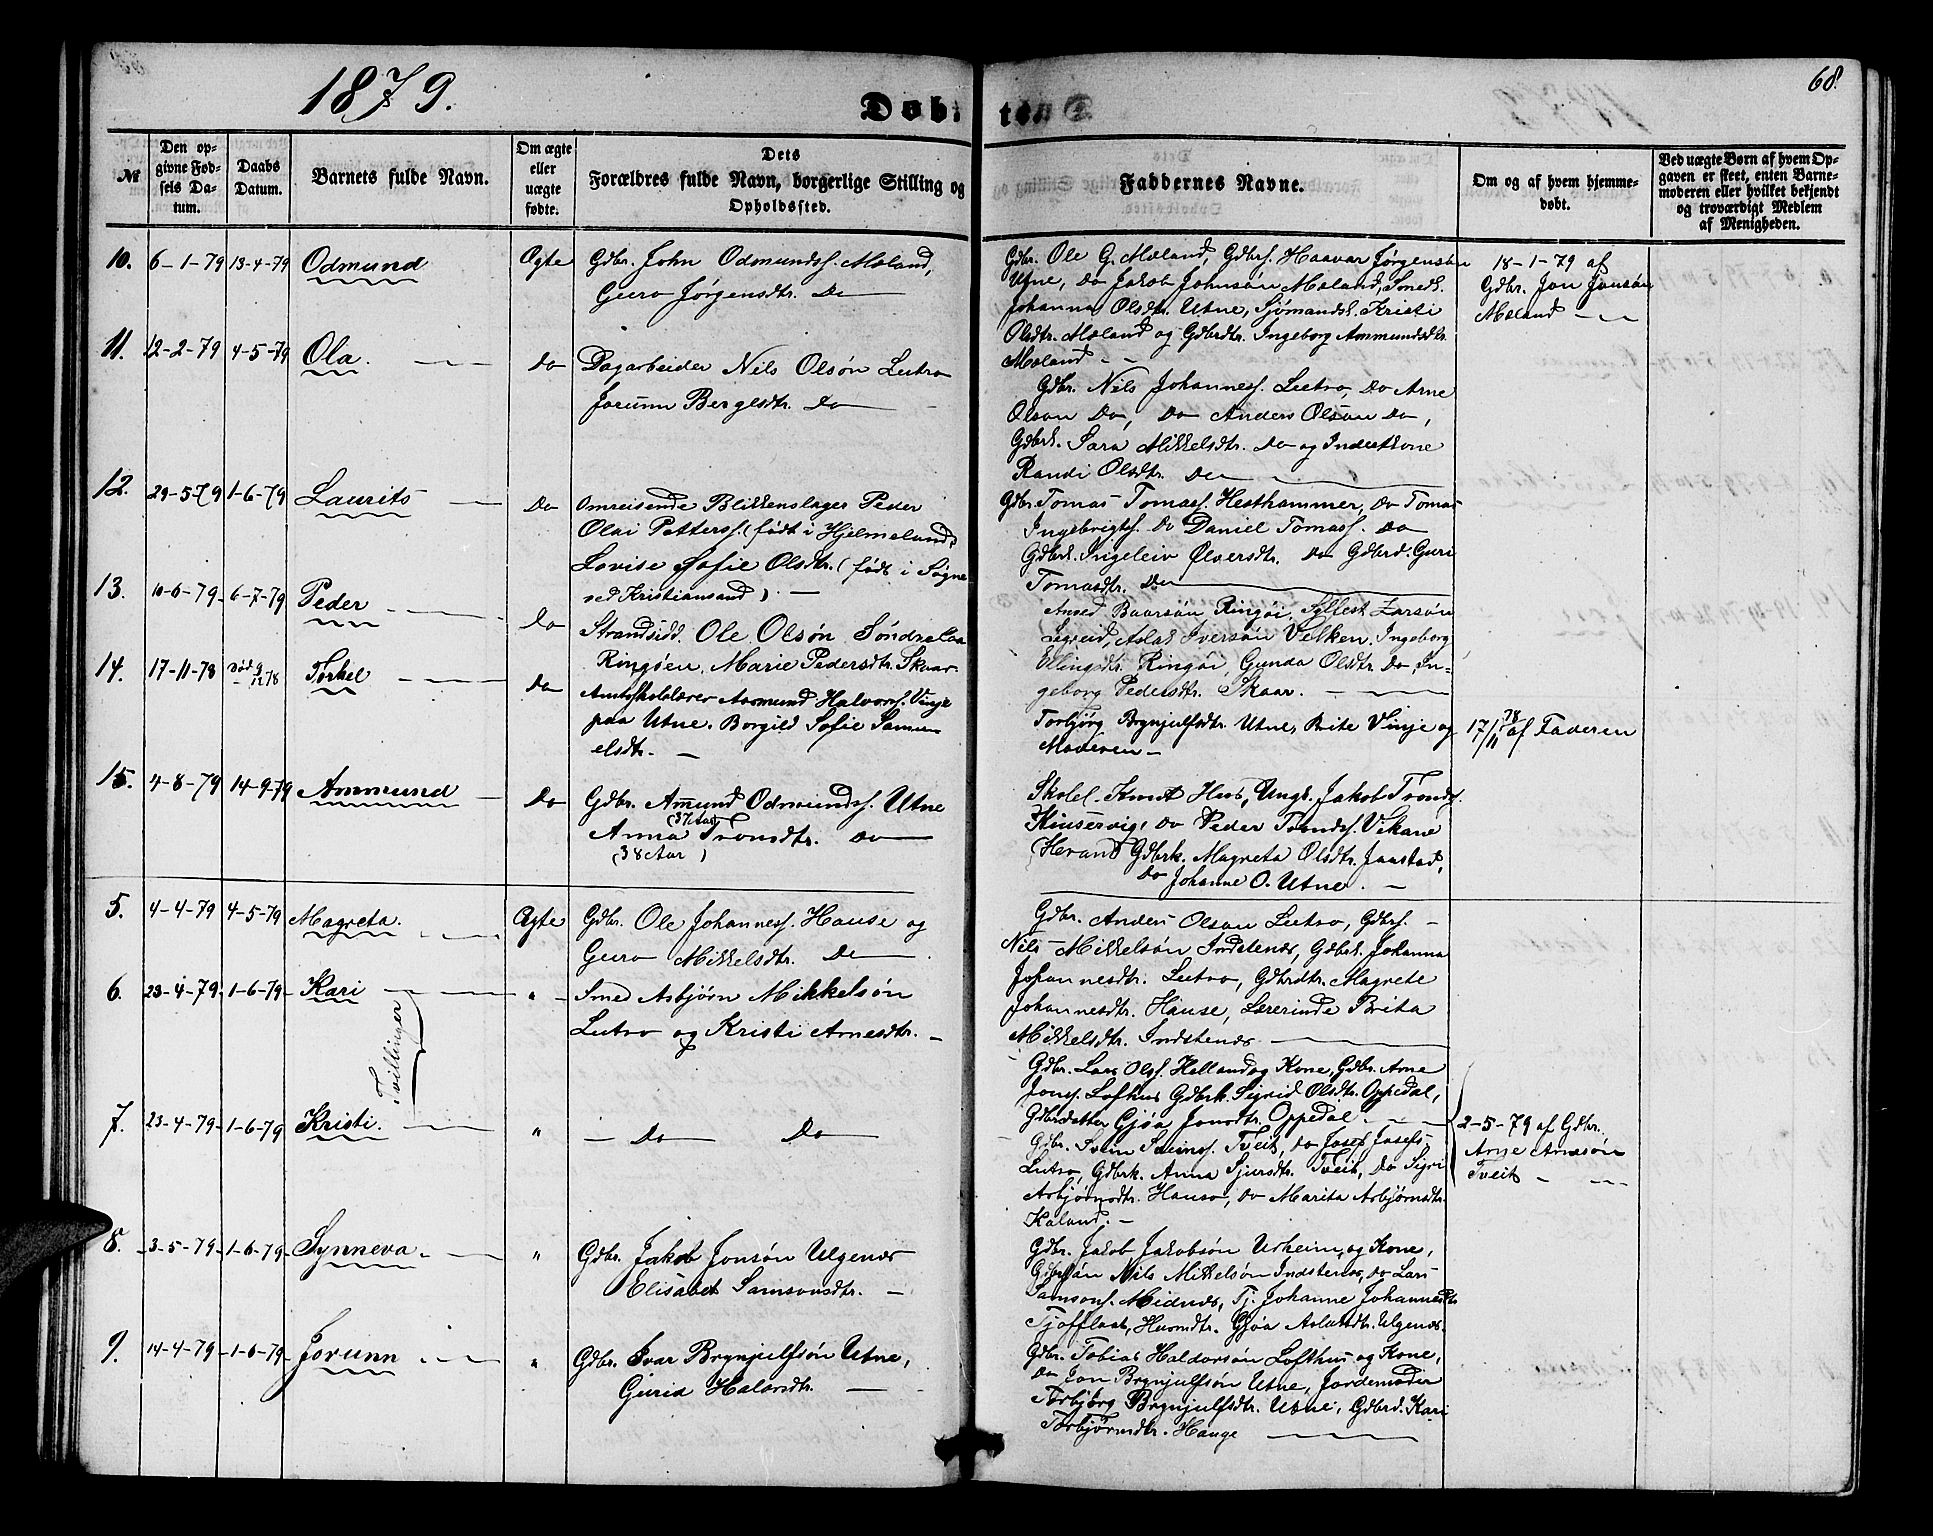 1879.
Døbte
68.
№
Den op-
givne Fød-
sels Da-
tum.
Daabs
Datum.
Barnets fulde Navn.
Om ægte
eller
uægte
fødte.
Dets
Forældres fulde Navn, borgerlige Stilling og
Opholdssted.
Faddernes Navne.
Om og af hvem hjemme-
døbt.
Ved uægte Børn af hvem Op-
gaven er skeet, enten Barne-
moderen eller hvilket bekjendt
og troværdigt Medlem
af Menigheden.
10. 6-1-79 13-4-79 Odmund Ægte
Gdbr. John Odmundss. Mæland,
Guro Jørgensdtr. Do
Gdbr. Ole G. Mæland, Gdbrs. Haavar Jørgensøn
Utne, Do Jakob Johnsøn Mæland, Smedk.
Johanna Olsdtr. Utne, Sjømandsk. Kristi
Olsdtr. Mæland og Gdbrdtr. Ingeborg Ammundsdtr.
Mæland
18-1-79 af
Gdbr. Jon Jonsøn
Mæland
11. 12-2-79 4-5-79 Ola. Do
Dagarbeider Nils Olsøn Lutro
Jorunn Bergesdtr. Do
Gdbr. Nils Johanness. Lutro, Do Arne
Olsøn Do, Do Anders Olsøn Do,
Gdbrk. Sara Mikkelsdtr. Do og Inderstkone
Randi Olsdtr. Do
12. 29-5-79 1-6-79 Laurits Do
Omreisende Blikkenslager Peder
Olai Petterss. (født i Hjelmeland,
Lovise Sofie Olsdtr. (født i Søgne
ved Kristiansand).
Gdbr. Tomas Tomass. Hesthammer, Do Tomas
Ingebrigts. Do Daniel Tomass. Do
Gdbrk. Ingeleiv Ølversdtr. Do Gdbrd. Guri
Tomasdtr. Do
13. 10-6-79 6-7-79 Peder Do
Strandsidd. Ole Olsøn
Ringøen, Marie Pedersdtr. Skaar
Baarsøn Ringøi, Syllest Larsøn
Aslak Iversøn Velken, Ingeborg
Elingsdtr. Ringøi, Gunda Olsdtr. Do, In-
geborg Pedersdtr. Skaar.
14. 17-11-78 død 9/12 78 Torkel Do
Amtsskolelærer Aasmund Halvorss. Vinje
paa Utne. Borgild Sofie Samu-
elsdtr.
Torbjørg Brynjulfsdtr. Utne, Brite Vinje og
Moderen
17/11 78 af Faderen
15. 4-8-79 14-9-79 Ammund Do
Gdbr. Amund Odmundss. Utne
(37 Aar)
Anna Trondsdtr. Do
(38 Aar)
Skolel. Knut Hus, Ungk. Jakob Tronds.
Kinservig, Do Peder Tronds. Vikane
(Herand) Gdbrk. Magreta Olsdtr. Jaastad,
Do Johanne O. Utne.
5. 4-4-79 4-5-79 Magreta. Ægte
Gdbr. Ole Johanness. Hause og
Guro Mikkelsdtr. Do
Gdbr. Anders Olsøn Lutro, Gdbrs.
Nils Mikkelsøn Indstenes, Gdbrk. Johanna
Johannesdtr. Lutro, Gdbrdtr. Magrete
Johannesdtr. Hause, Lærerinde Brita
Mikkelsdtr. Indstenes
6. 23-4-79 1-6-79 Kari "
Smed Asbjørn Mikkelsøn
Lutro og Kristi Arnesdtr.
Gdbr. Lars Olss. Helland og Kone, Gdbr. Arne
Jonss. Lofthus Gdbrk. Sigrid Olsdtr. Oppedal,
Gdbrdatter Gjøa Jonsdtr. Oppedal
Tvillinger
7. 23-4-79 1-6-79 Kristi. "
Do Do
Gdbr. Svein Sveins. Tveit, Do Josef Josefs.
Lutro, Gdbrk. Anna Sjursdtr. Tveit, Do Sigri
Asbjørnsdtr. Hauso, Do Marita Asbjørnsdtr.
Kaland.
2-5-79 af Gdbr.
Arne Arnesøn
Tveit
8. 3-5-79 1-6-79 Synneva. "
Gdbr. Jakob Jonsøn Ulgenes
Elisabet Samsonsdtr.
Gdbr. Jakob Jakobsøn Urheim og Kone,
Gdbrsøn Nils Mikkelsøn Indstenes, Do Lars
Samsons. Midnes, Tj. Johanne Johannesdtr.
Tjoflaat, Husmdtr. Gjøa Aslaksdtr. Ulgenes.
9. 14-4-79 1-6-79 Jorunn "
Gdbr. Ivar Brynjulfsøn Utne,
Gurid Halvorsdtr.
Gdbr. Tobias Haldorsøn Lofthus og Kone,
Do Jon Brynjulfsøn Utne, Jordemoder
Torbjørg Brynjulfsdtr. Utne, Gdbrd. Kari
Torbjørnsdtr. Hauge